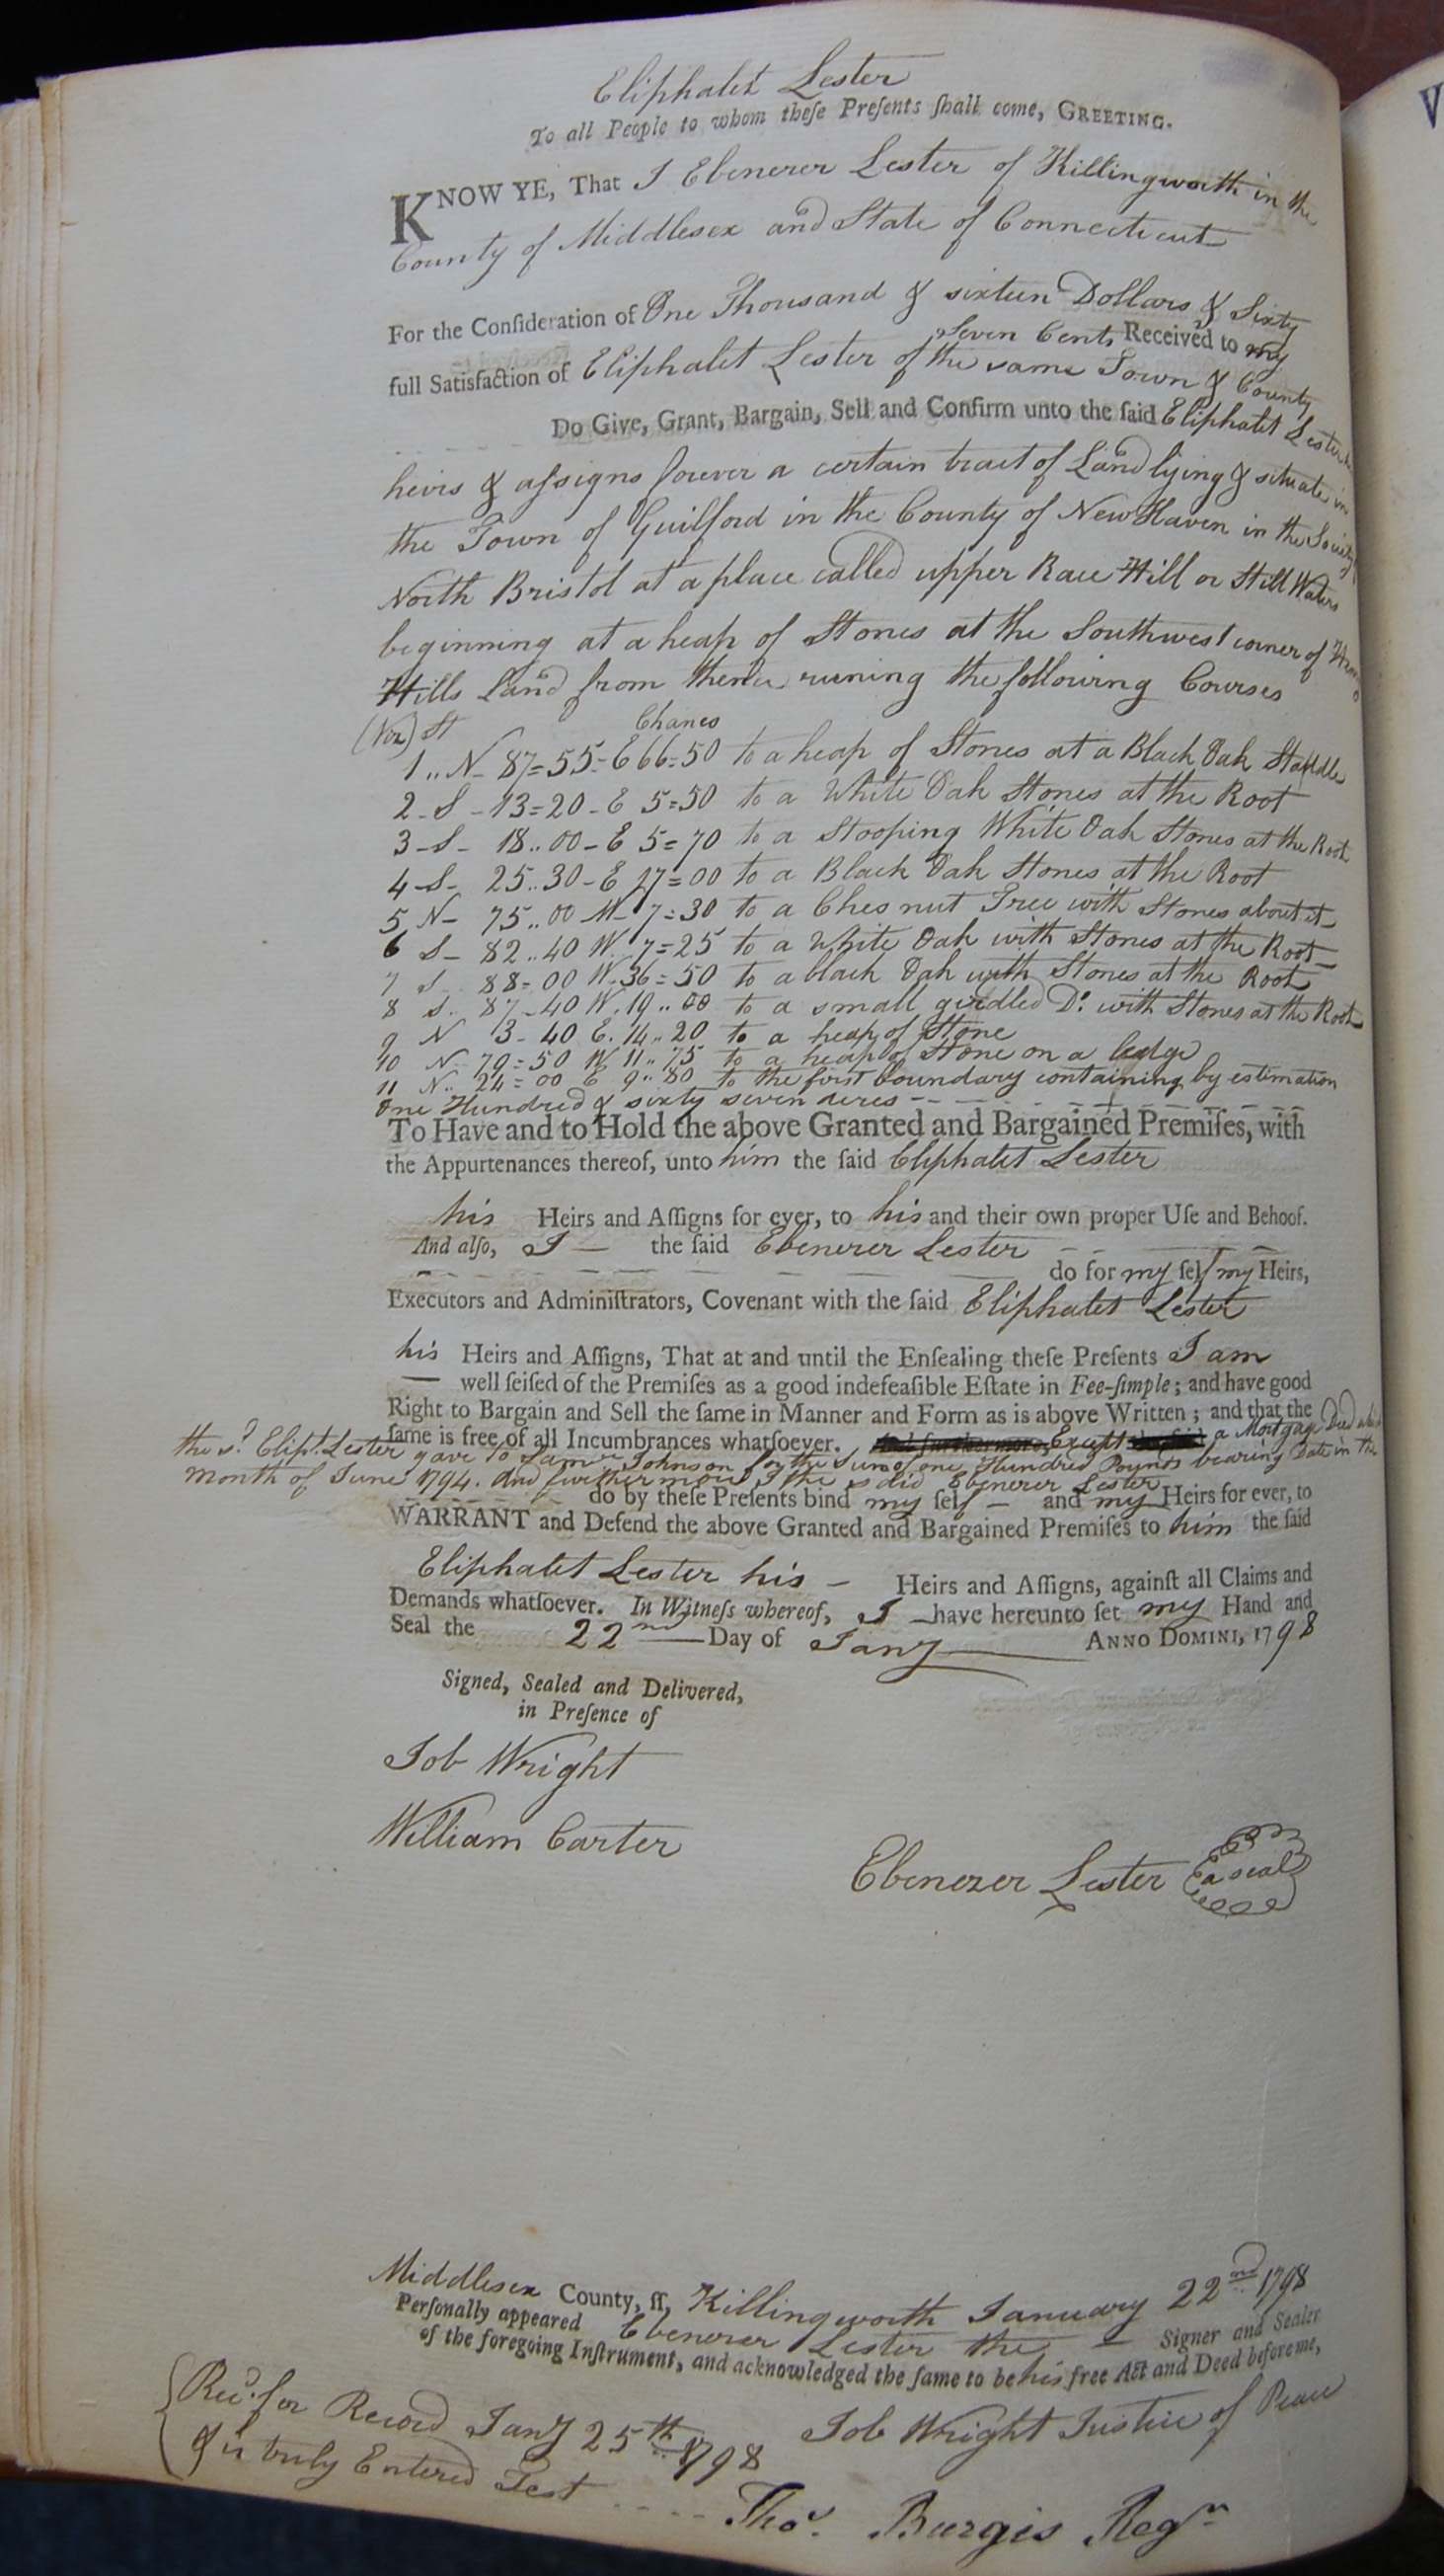 Eliphalet Lester
To all People to whom theſe Preſents ſhall come, GREETING.
KNOW YE, That I Ebenezer Lester of Killingworth in the
County of Middlesex and State of Connecticut
For the Conſideration of One Thousand & sixteen Dollars & Sixty
Seven Cents Received to my
full Satisfaction of Eliphalet Lester of the same Town & County
Do Give, Grant, Bargain, Sell and Confirm unto the ſaid Eliphalet Lester
heirs & assigns forever a certain tract of Land lying & situate in
the Town of Guilford in the County of New Haven in the Society
North Bristol at a place called upper Race Hill or Still Waters
beginning at a heap of Stones at the Southwest corner of
Hills Land from thence runing the following Courses
(Viz) St Chanes
1 .. N - 87=55=E 66=50 to a heap of Stones at a Black Oak Staddle
2 - S - 13=20 - E 5=50 to a White Oak Stones at the Root
3 - S - 18..00 - E 5=70 to a Stooping White Oak Stones at the Root
4 - S - 25..30 - E 27=00 to a Black Oak Stones at the Root
5 N - 75..00 W - 7=30 to a Chesnut Tree with Stones about it
6 S - 82..40 W. 7=25 to a White Oak with Stones at the Root
7 S - 88=00 W. 36=50 to a black Oak with Stones at the Root
8 S. 87-40 W. 19..00 to a small girdled Do. with Stones at the Root
9 N 3-40 E. 14..20 to a heap of Stone
10 N. 79=50 W 11..75 to a heap of Stone on a ledge
11 N.. 24=00 E 9..80 to the first boundary containing by estimation
One Hundred & sixty seven acres
To Have and to Hold the above Granted and Bargained Premiſes, with
the Appurtenances thereof, unto him the ſaid Eliphalet Lester
his Heirs and Aſſigns for ever, to his and their own proper Uſe and Behoof.
And alſo, I — the ſaid Ebenezer Lester
do for my ſelf my Heirs,
Executors and Adminiſtrators, Covenant with the ſaid Eliphalet Lester
his Heirs and Aſſigns, That at and until the Enſealing theſe Preſents I am
— well ſeiſed of the Premiſes as a good indefeaſible Eſtate in Fee-ſimple; and have good
Right to Bargain and Sell the ſame in Manner and Form as is above Written; and that the
ſame is free of all Incumbrances whatſoever. And furthermore, Except a Mortgage Deed which
the sd. Elipt. Lester gave to Saml Johnson for the Sum of one Hundred Pounds bearing Date in the
month of June 1794. And furthermore I the said Ebenezer Lester
do by theſe Preſents bind my ſelf — and my Heirs for ever, to
WARRANT and Defend the above Granted and Bargained Premiſes to him the ſaid
Eliphalet Lester his — Heirs and Aſſigns, againſt all Claims and
Demands whatſoever. In Witneſs whereof, I — have hereunto ſet my Hand and
Seal the 22nd — Day of Jany — ANNO DOMINI, 1798
Signed, Sealed and Delivered,
in Preſence of
Job Wright
William Carter
Ebenezer Lester a seal
Middlesex County, ſſ, Killingworth January 22nd 1798
Perſonally appeared Ebenezer Lester the — Signer and Sealer
of the foregoing Inſtrument, and acknowledged the ſame to be his free Act and Deed before me,
Job Wright Justice of Peace
Recd. for Record Jany 25th 1798
& is truly Entered Test
Thos. Burgis Regr